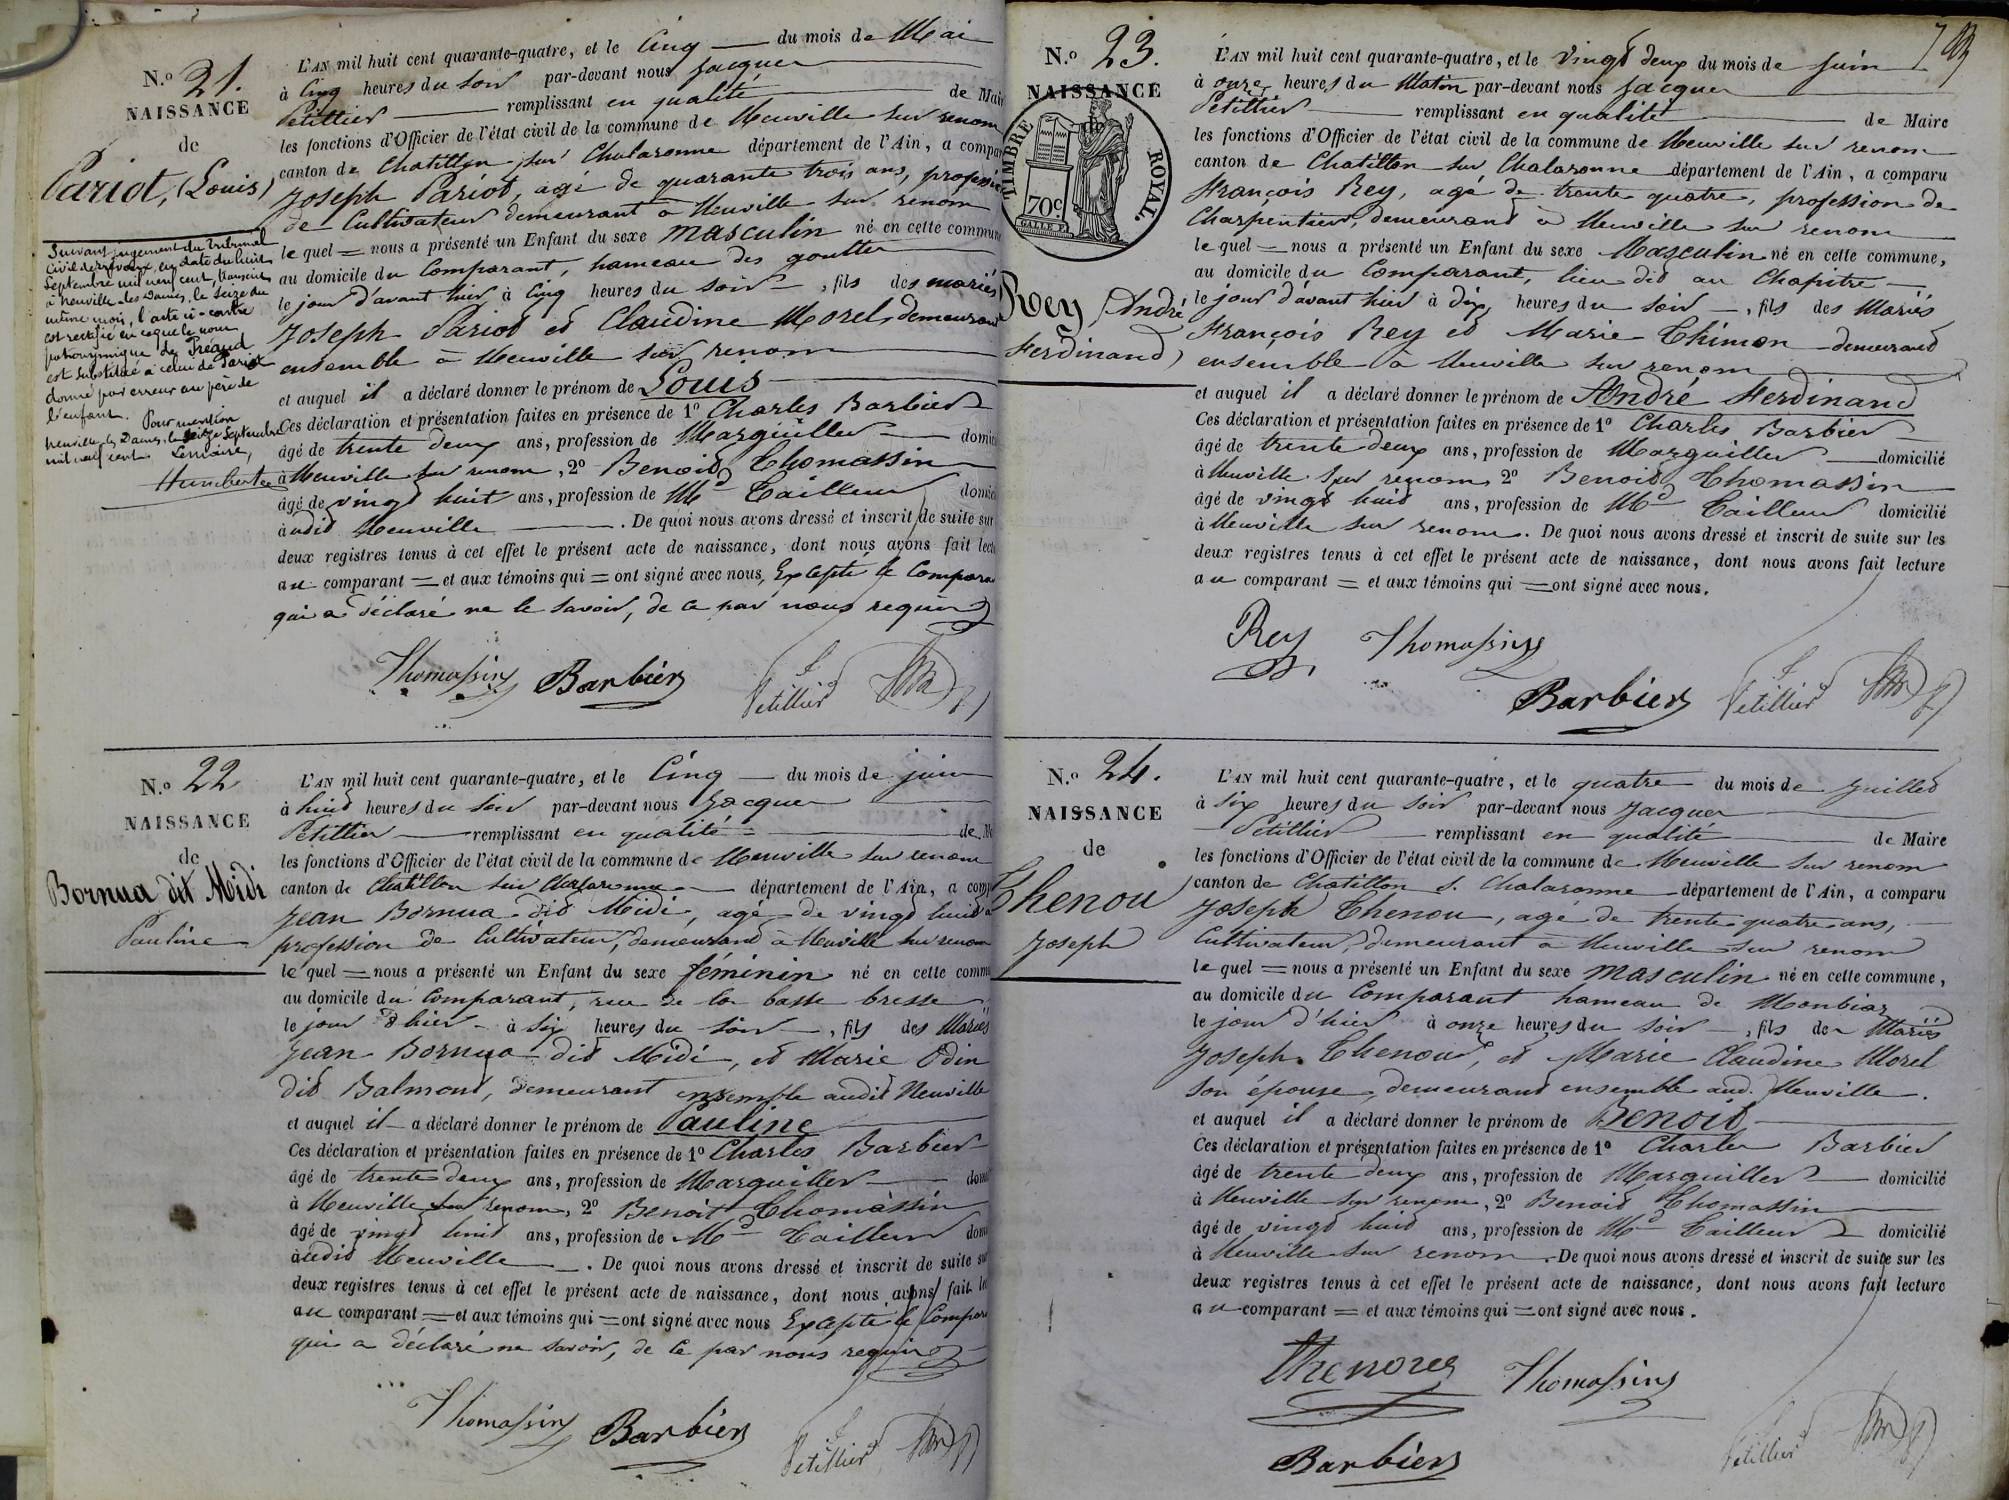 N.o 21.
NAISSANCE
de
Pariot, (Louis)
Suivant jugement du tribunal
civil de Trévoux, en date du huit
Septembre mil neuf cent, transcrit
à Neuville-les-Dames, le seize du
même mois, l'acte ci-contre
est rectifié en ce que le nom
patronymique de Préaud
est substitué à celui de Pariot
donné par erreur au père de
l'enfant.
Pour mention
Neuville-les-Dames, le seize Septembre
mil neuf cent. Le maire,
L'AN mil huit cent quarante-quatre, et le Cinq du mois de Mai
à Cinq heures du soir par-devant nous Jacques
Petillier remplissant en qualité de Mair
les fonctions d'Officier de l'état civil de la commune de Neuville sur renom
canton de Chatillon sur Chalaronne département de l'Ain, a compar
Joseph Pariot, agé de quarante trois ans, profession
de Cultivateur demeurant à Neuville sur renom
le quel = nous a présenté un Enfant du sexe masculin né en cette commune
au domicile du Comparant, hameau des goutter
le jour d'avant hier à Cinq heures du soir, fils des mariés
Joseph Pariot et Claudine Morel, demeurant
ensemble à Neuville sur renom
et auquel il a déclaré donner le prénom de Louis
Ces déclaration et présentation faites en présence de 1o Charles Barbier
âgé de trente deux ans, profession de Marguiller domici
à Neuville sur renom, 2o Benoid Thomassin
âgé de vingt huit ans, profession de Md Tailleur domici
à udit Neuville. De quoi nous avons dressé et inscrit de suite sur
deux registres tenus à cet effet le présent acte de naissance, dont nous avons fait lectu
au comparant = et aux témoins qui = ont signé avec nous, Excepté le Compara
qui a déclaré ne le savoir, de ce par nous requis
Thomassin Barbier Petillier
N.o 22
NAISSANCE
de
Bornua dit Midi
Pauline
L'AN mil huit cent quarante-quatre, et le Cinq du mois de juin
à huit heures du soir par-devant nous Jacques
Petillier remplissant en qualité de M
les fonctions d'Officier de l'état civil de la commune de Neuville sur renom
canton de Chatillon sur Chalaronne département de l'Ain, a comp
Jean Bornua dit Midi, agé de vingt huit a
profession de Cultivateur, demeurand à Neuville sur renom
le quel = nous a présenté un Enfant du sexe féminin né en cette commu
au domicile du Comparant, rue de la basse bresse
le jour d'hier à six heures du soir, fils des Mariés
Jean Bornua dit Midi, et Marie Odin
dit Balmont, demeurant ensemble audit Neuville
et auquel il a déclaré donner le prénom de Pauline
Ces déclaration et présentation faites en présence de 1o Charles Barbier
âgé de trente deux ans, profession de Marguiller domi
à Neuville sur renom, 2o Benoit Thomassin
âgé de vingt huit ans, profession de Md Tailleur domi
à udit Neuville. De quoi nous avons dressé et inscrit de suite su
deux registres tenus à cet effet le présent acte de naissance, dont nous avons fait le
au comparant = et aux témoins qui = ont signé avec nous Excepté le Compara
qui a déclaré ne savoir, de ce par nous requis
Thomassin Barbier Petillier
N.o 23.
NAISSANCE
de
TIMBRE ROYAL.
70c.
Rey (André
Ferdinand)
L'AN mil huit cent quarante-quatre, et le vingt deux du mois de juin
à onze heures du Matin par-devant nous Jacques
Petillier remplissant en qualité de Maire
les fonctions d'Officier de l'état civil de la commune de Neuville sur renom
canton de Chatillon sur Chalaronne département de l'Ain, a comparu
François Rey, agé de trente quatre, profession de
Charpentier, demeurand à Neuville sur renom
le quel = nous a présenté un Enfant du sexe Masculin né en cette commune,
au domicile du Comparant, lieu dit au Chapitre
le jour d'avant hier à dix heures du soir, fils des Mariés
François Rey et Marie Thimon demeurand
ensemble à Neuville sur renom
et auquel il a déclaré donner le prénom de André Ferdinand
Ces déclaration et présentation faites en présence de 1o Charles Barbier
âgé de trente deux ans, profession de Marguiller domicilié
à Neuville sur renom 2o Benoid Thomassin
âgé de vingt huit ans, profession de Md Tailleur domicilié
à Neuville sur renom. De quoi nous avons dressé et inscrit de suite sur les
deux registres tenus à cet effet le présent acte de naissance, dont nous avons fait lecture
au comparant = et aux témoins qui = ont signé avec nous.
Rey Thomassin
Barbier Petillier
N.o 24.
NAISSANCE
de
Thenou
Joseph
L'AN mil huit cent quarante-quatre, et le quatre du mois de Juillet
à six heures du soir par-devant nous Jacques
Petillier remplissant en qualité de Maire
les fonctions d'Officier de l'état civil de la commune de Neuville sur renom
canton de Chatillon s. Chalaronne département de l'Ain, a comparu
Joseph Thenou, agé de trente quatre ans,
Cultivateur, demeurant à Neuville sur renom
le quel = nous a présenté un Enfant du sexe masculin né en cette commune,
au domicile du Comparant hameau de Monbiar
le jour d'hier à onze heures du soir, fils des Mariés
Joseph Thenou, et Marie Claudine Morel
son épouse demeurand ensemble aud. Neuville.
et auquel il a déclaré donner le prénom de Benoid
Ces déclaration et présentation faites en présence de 1o Charles Barbier
âgé de trente deux ans, profession de Marguiller domicilié
à Neuville sur renom, 2o Benoid Thomassin
âgé de vingt huid ans, profession de Md Tailleur domicilié
à Neuville sur renom. De quoi nous avons dressé et inscrit de suite sur les
deux registres tenus à cet effet le présent acte de naissance, dont nous avons fait lecture
au comparant = et aux témoins qui = ont signé avec nous.
Thenou Thomassin
Barbier Petillier